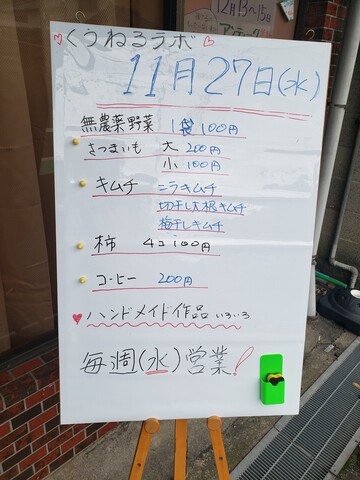 くうねるラボ
11月27日(水)
無農薬野菜 1袋100円
さつまいも 大200円
小100円
キムチ ニラキムチ
切干し大根キムチ
梅干しキムチ
柿 4コ100円
コーヒー 200円
ハンドメイド作品 いろいろ
毎週(水)営業!
12月13〜15日